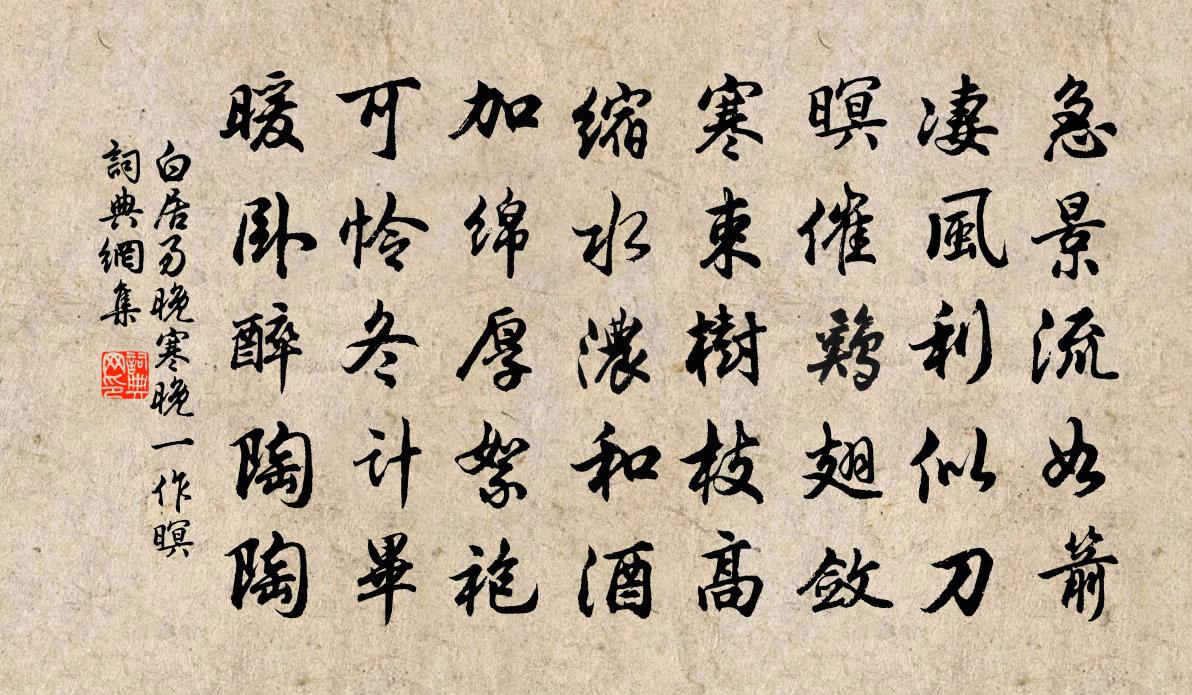 急景流如箭
凄風利似刀
暝催鷄翅斂
寒束樹枝高
縮水濃和酒
加綿厚絮袍
可怜冬計畢
暖卧醉陶陶
白居易晚寒晚一作暝
詞典網集
詞典网印